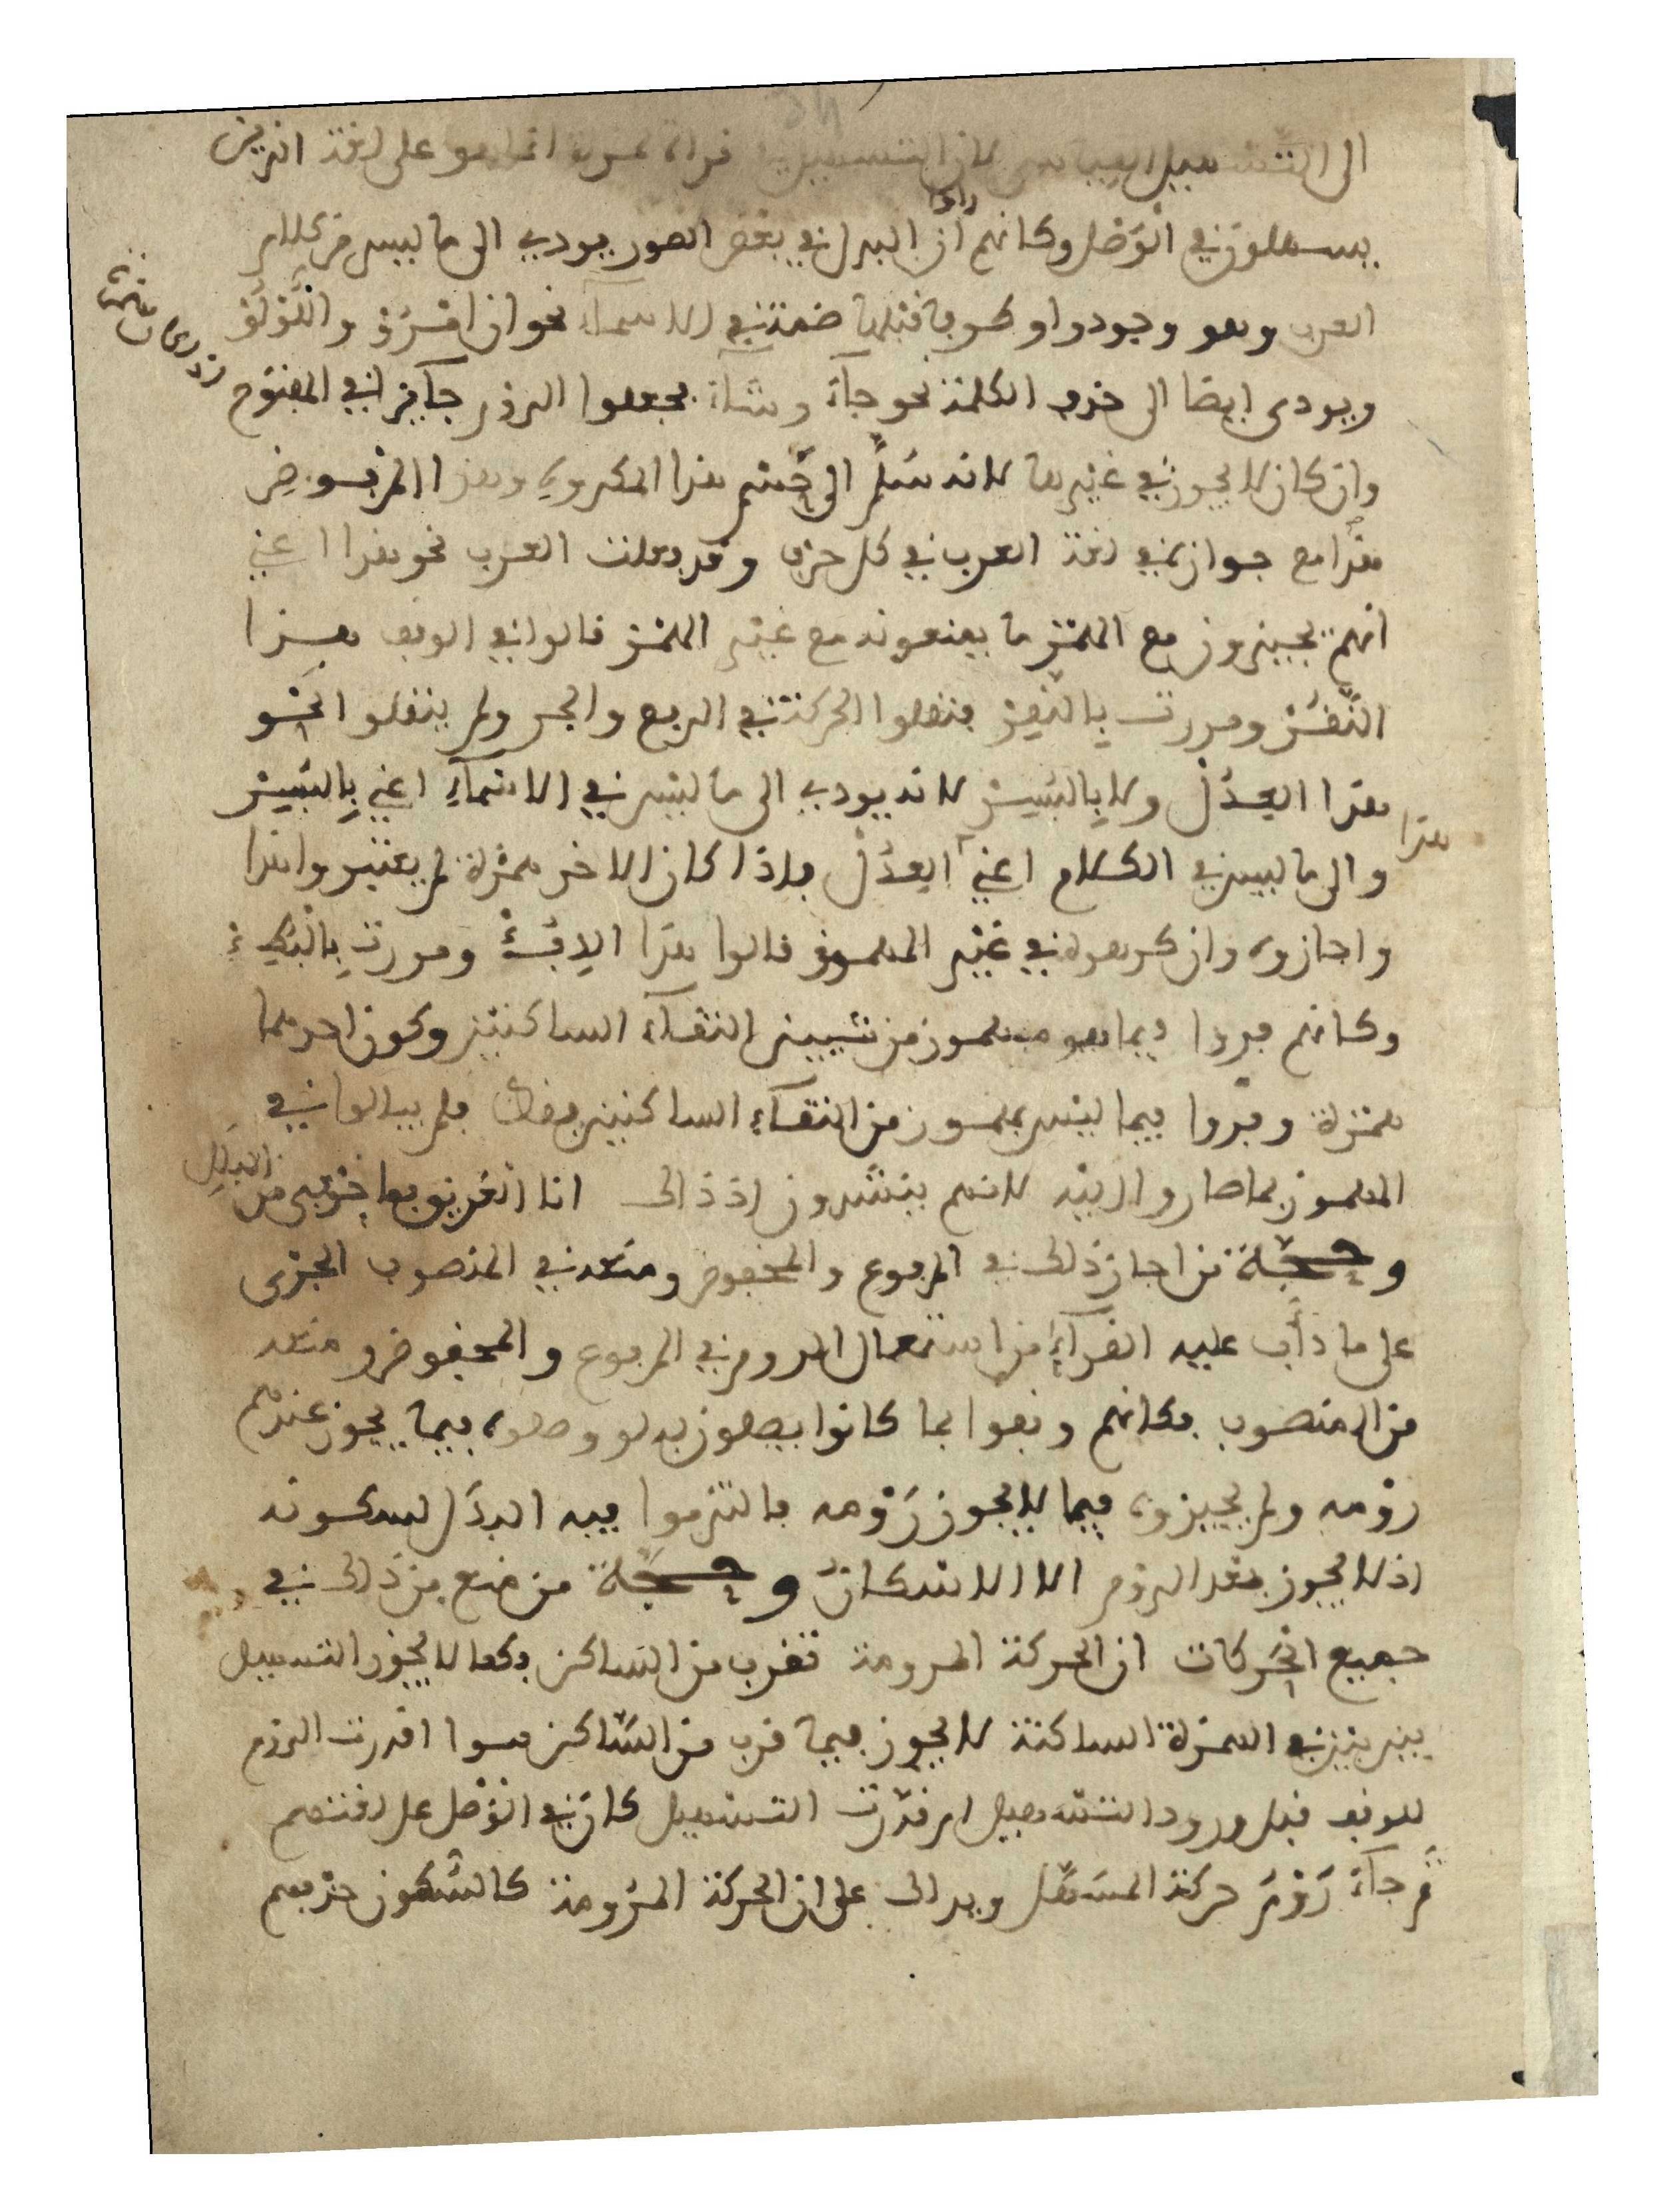 الى التسهيل القياسي لان التسهيل في قراءة حمزة انما هو على لغة الذين
يسهلون في الوصل وكانهم راوا ان البدل في بعض الصور يودي الى ما ليس من كلام
العرب وهو وجود واو طرفا قبلها ضمة في الاسماء نحو ان امرؤ واللؤلؤ
ويودى ايضا الى حذف الكلمة نحو جآء وشآء فجعلوا الروم جآئزا في المفتوح
وان كان لا يجوز في غيرها لانه سلم الى حسم هذا المكروه وهذا المرفوض
هذا مع جوازه في لغة العرب في كل حرف وقد فعلت العرب نحو هذا اعني
انهم يجيزون مع الهمز ما يمنعونه مع غير الهمز قالوا في الوقف هذا
النقر ومررت بالنقر فنقلوا الحركة في الرفع والجر ولم ينقلوا في نحو
هذا العدل ولا بالبسر لانه يودي الى ما ليس في الاسمآء اعني بالبسر
هذا
والى ما ليس في الكلام اعني العدل فاذا كان الاخر همزة لم يعتبروا هذا
واجازوه وان كرهوه في غير المهموز قالوا هذا الردء ومررت بالبطء
وكانهم فروا فيما هو مهموز من شيين التقآء الساكنين وكون احدهما
همزة وفروا فيما ليس بمهموز من التقآء الساكنين فقط فلم يبالوا في
المهموز بما صاروا اليه لانهم ينشدون اذ ذاك انا الغريق فما خوفي من البلل
وحجة من اجاز ذلك في المرفوع والمخفوض ومنعه في المنصوب الجري
على ما داب عليه القرآء من استعمال الروم في المرفوع والمخفوض ومنعه
من المنصوب فكانهم وقفوا بما كانوا يصلون به لو وصلوه فيما يجوز عندهم
رومه ولم يجيزوه فيما لا يجوز رومه فالتزموا فيه البدل لسكونه
اذ لا يجوز بعد الروم الا الاسكان وحجة من منع من ذلك في
جميع الحركات ان الحركة المرومة تقرب من الساكن فكما لا يجوز التسهيل
بين بين في الهمزة الساكنة لا يجوز فيما قرب من الساكن سوا قدرت الروم
للوقف قبل ورود التسهيل او قدرت التسهيل كان في الوصل على لغتهم
ثم جآء روم حركة المسهل ويدلك على ان الحركة المرومة كالسكون حذفهم